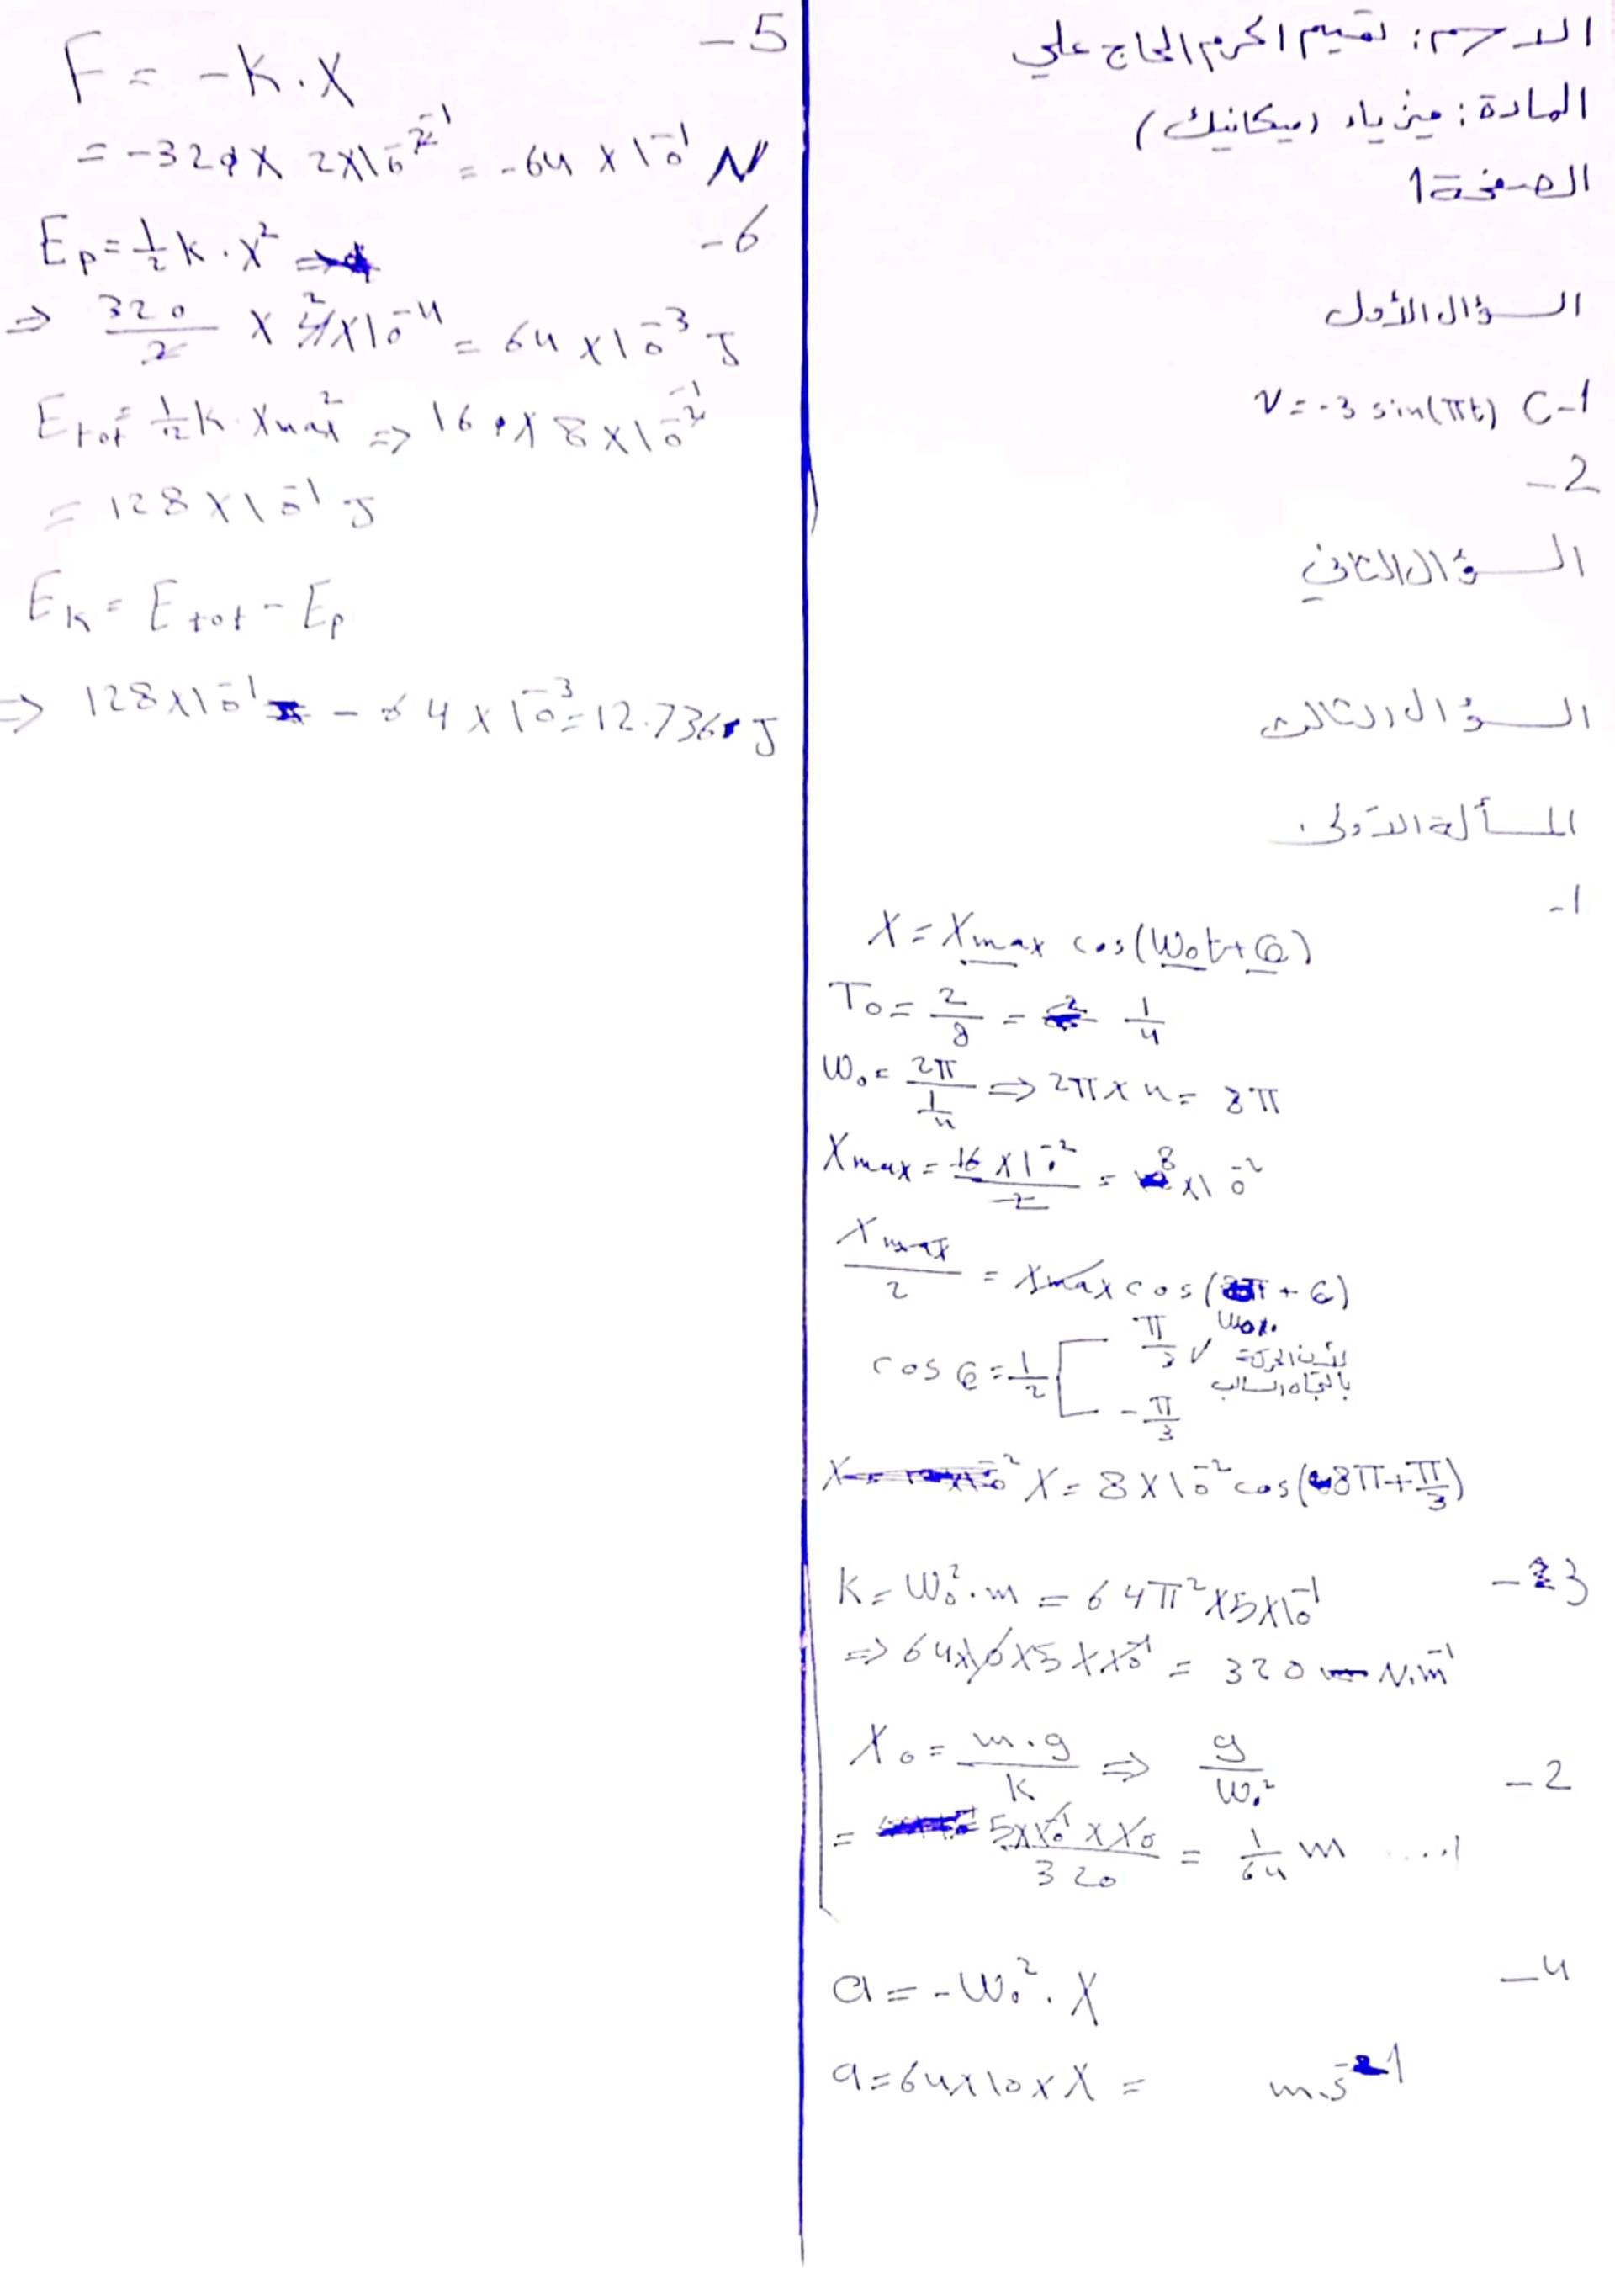 الاسم: تقييم اكرم الحاج علي
المادة: فيزياء (ميكانيك)
الصفحة 1
السؤال الأول
1- C v = -3 sin(πt)
2-
السؤال الثاني
السؤال الثالث
المسألة الأولى:
1-
X = Xmax cos(ω₀t+φ)
T₀ = 2/8 = 1/4
ω₀ = 2π/(1/4) ⇒ 2π×4 = 8π
Xmax = 16×10⁻²/2 = 8×10⁻²
Xmax/2 = Xmax cos( + φ)
cos φ = 1/2 [ π/3 ✓ لأن الحركة بالاتجاه السالب
-π/3
X = 8×10⁻² cos(8π+π/3)
3-
k = ω₀².m = 64π²×5×10⁻¹
⇒ 64×10×5×10⁻¹ = 320 N.m⁻¹
2-
X₀ = m.g/k ⇒ g/ω₀²
= 5×10⁻¹×10/320 = 1/64 m
4-
a = -ω₀².X
a = 64×10×X = m.s⁻¹
5-
F = -k.X
= -320×2×10⁻² = -64×10⁻¹ N
6-
Ep = 1/2 k.X²
⇒ 320/2 × 4×10⁻⁴ = 64×10⁻³ J
Etot = 1/2 k.Xmax² ⇒ 160×8×10⁻²
= 128×10⁻¹ J
Ek = Etot - Ep
⇒ 128×10⁻¹ - 64×10⁻³ = 12.736 J